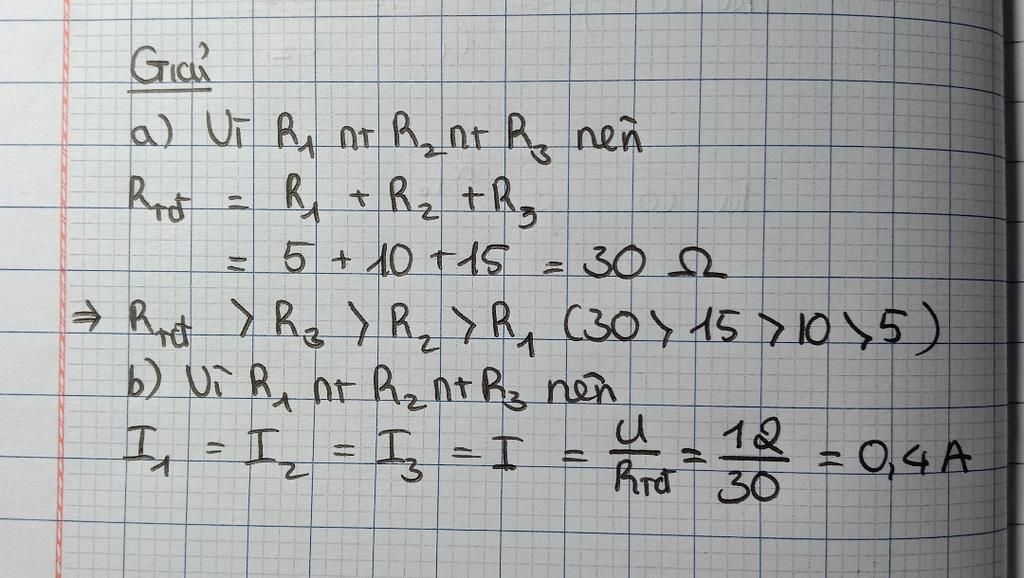 Giải
a) Vì R₁ nt R₂ nt R₃ nên
Rtđ = R₁ + R₂ + R₃
= 5 + 10 + 15 = 30 Ω
⇒ Rtđ > R₃ > R₂ > R₁ (30 > 15 > 10 > 5)
b) Vì R₁ nt R₂ nt R₃ nên
I₁ = I₂ = I₃ = I = U/Rtđ = 12/30 = 0,4 A